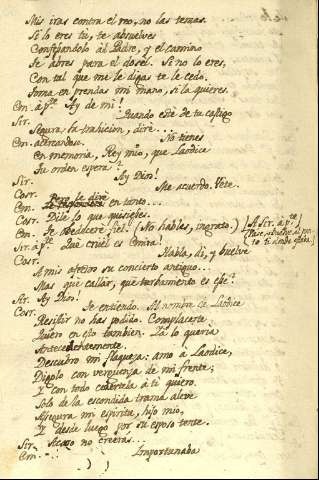 Mis iras contra el reo, no las temas.
Si lo eres tú, te absuelves
Confesándolo al Padre, y el camino
Te abres para el dosel. Si no lo eres,
Con tal que me le digas te le cedo.
Toma en prendas mi mano, si la quieres.
Em. á p.te Ay de mi!
Sir. Quando esté de tu castigo
Segura tu traicion, diré...
Em. acercandose. No tienes
En memoria, Rey mio, que Laodice
Tu orden espera?
Sir. Ay Dios!
Cosr. Me acuerdo. Vete.
Em. en tanto...
Cosr. Dile lo que quisieres.
Em. Te obedeceré fiel! (No hables, ingrato.)
Sir. á p.te Qué cruel es Emira!
Cosr. Habla, di, y buelve
A mis afectos su concierto antiguo...
Mas que callar, que turbamento es este?
Sir. Ay Dios!
Cosr. Te entiendo. Al nombre de Laodice
Resistir no has podido. Complacerte
Quiero en esto tambien. Ya lo queria
Antecedentemente.
Descubro mi flaqueza: amo a Laodice,
Digolo con vergüenza de mi frente;
Y con todo cedertela á ti quiero.
Solo de la escondida trama aleve
Assegura mi espiritu, hijo mio,
Y desde luego por su esposo tente.
Sir. Acaso no creerás...
Em. Importunada